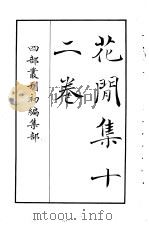 花間集十
二卷
四部叢刊初編集部
mtoou.info